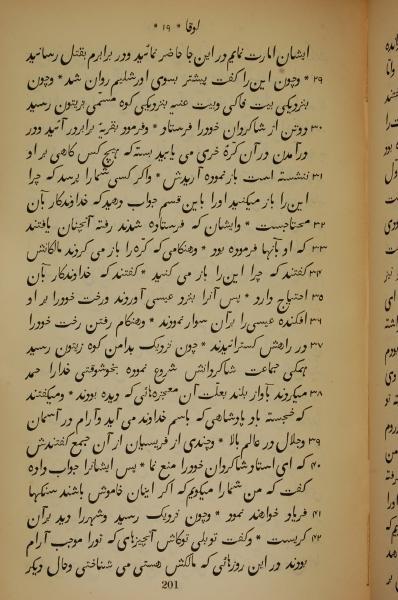 لوقا * ۱۹ *
ایشان امارت نمایم در این جا حاضر نمائید و در برابرم بقتل رسانید
۲۹ * وچون این را گفت پیشتر بسوی اورشلیم روان شد * وچون
بنزدیکی بیت فاکی وبیت عنیه بنزدیکی کوه مسمی بزیتون رسید
۳۰ دوتن از شاکردان خودرا فرستاد * وفرمود بقریه برابر در آئید ودر
در آمدن در آن کرهٔ خری می یابید بسته که هیچ کس کاهی بر او
۳۱ ننشسته است باز نموده آریدش * واکر کسی شمارا پرسد که چرا
این را باز میکنید اورا باین قسم جواب دهید که خداوندکار بآن
۳۲ محتاجست * وایشان که فرستاده شدند رفته آنچنان یافتند
۳۳ که او بآنها فرموده بود * وهنکامی که کره را باز می کردند مالکانش
۳۴ کفتند که چرا این را باز می کنید * کفتند که خداوندکار بآن
۳۵ احتیاج دارد * پس آنرا بنزد عیسی آوردند ورخت خودرا بر او
۳۶ افکنده عیسی را بر آن سوار نمودند * وهنکام رفتن رخت خودرا
۳۷ در راهش کسترانیدند * چون نزدیک بدامن کوه زیتون رسید
همکی جماعت شاکردانش شروع نموده بخوشوقتی خدارا حمد
۳۸ میکردند بآواز بلند بعلت آن معجزه‌هائی که دیده بودند * ومیکفتند
که خجسته باد پادشاهی که باسم خداوند می آید وآرام در آسمان
۳۹ وجلال در عالم بالا * وچندی از فریسیان از آن جمع کفتندش
۴۰ که ای استاد شاکردان خودرا منع نما * پس ایشانرا جواب داده
کفت که من شمارا میکویم که اکر اینان خاموش باشند سنکها
۴۱ فریاد خواهند نمود * وچون نزدیک رسید وشهررا دید بر آن
۴۲ کریست * وکفت تو بلی تو کاش آنچیزهای که تورا موجب آرام
بودند در این روزهائی که مالکش هستی می شناختی وحال دیکر
201